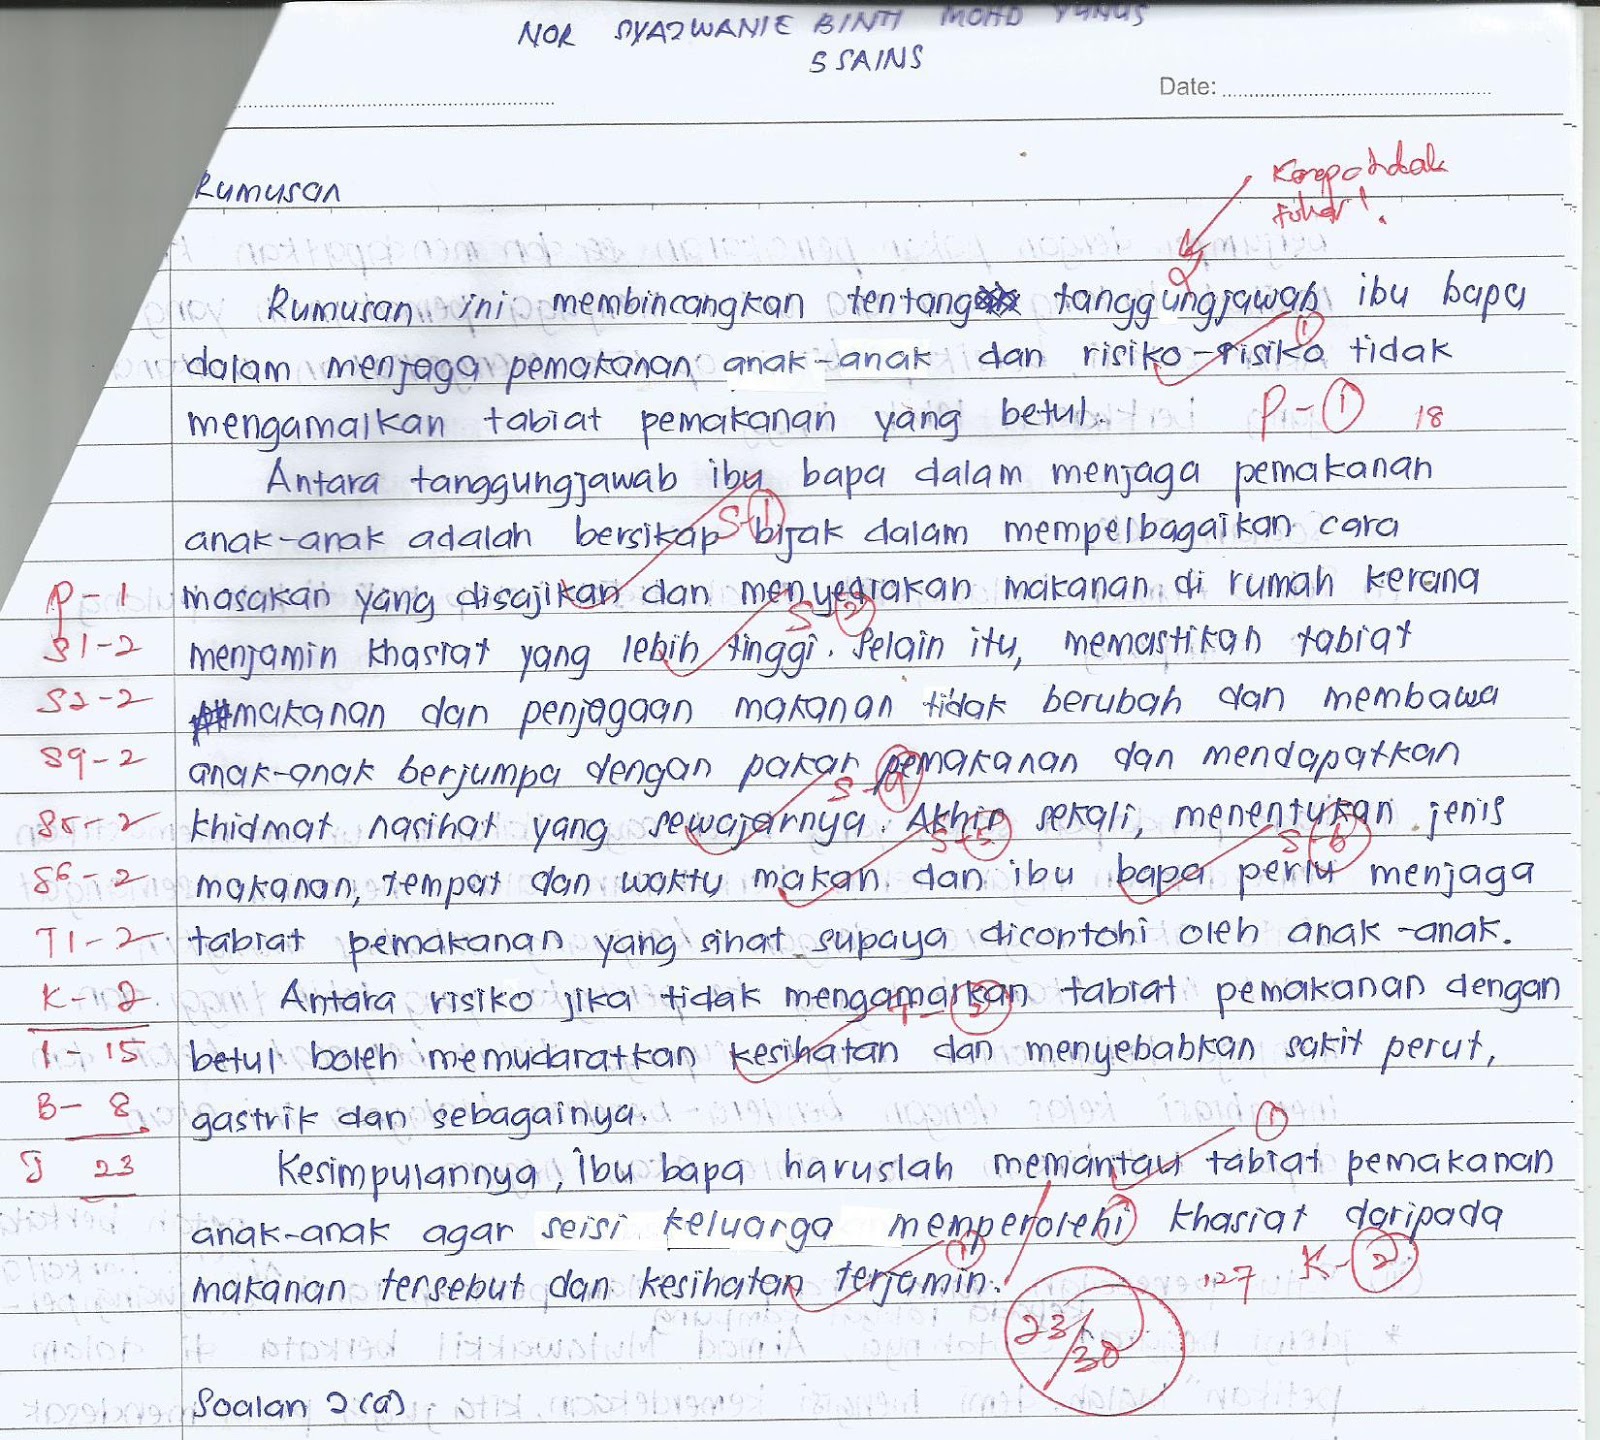 NOR SYAZWANIE BINTI MOHD YUNUS
5 SAINS
Date:
Rumusan
Rumusan ini membincangkan tentang tanggungjawab ibu bapa
dalam menjaga pemakanan anak-anak dan risiko-risiko tidak
mengamalkan tabiat pemakanan yang betul.
P-1 18
Antara tanggungjawab ibu bapa dalam menjaga pemakanan
S-1
anak-anak adalah bersikap bijak dalam mempelbagaikan cara
P-1 masakan yang disajikan dan menyediakan makanan di rumah kerana
S-2
S1-2 menjamin khasiat yang lebih tinggi. Selain itu, memastikan tabiat
S2-2 makanan dan penjagaan makanan tidak berubah dan membawa
S9-2 anak-anak berjumpa dengan pakar pemakanan dan mendapatkan
S-9
S5-2 khidmat nasihat yang sewajarnya. Akhir sekali, menentukan jenis
S-5 S-6
S6-2 makanan, tempat dan waktu makan dan ibu bapa perlu menjaga
T1-2 tabiat pemakanan yang sihat supaya dicontohi oleh anak-anak.
K-2 Antara risiko jika tidak mengamalkan tabiat pemakanan dengan
1-15 betul boleh memudaratkan kesihatan dan menyebabkan sakit perut,
B-8 gastrik dan sebagainya.
1
J 23 Kesimpulannya, ibu bapa haruslah memantau tabiat pemakanan
anak-anak agar seisi keluarga memperolehi khasiat daripada
1
makanan tersebut dan kesihatan terjamin. 127 K-2
23/30
Soalan 2(a)